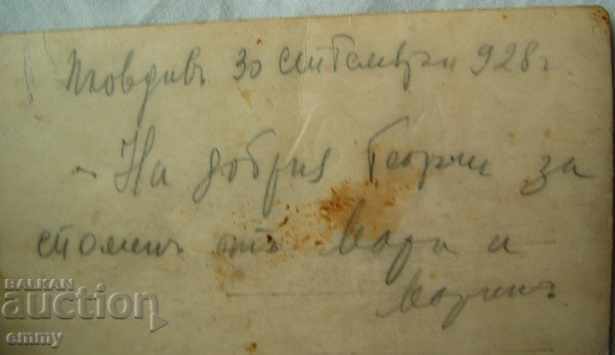 Пловдивъ 30 септемврий 928 г.
– На добрия Георги за
споменъ отъ Мара и
Маринъ
BALKAN
auction
emmy